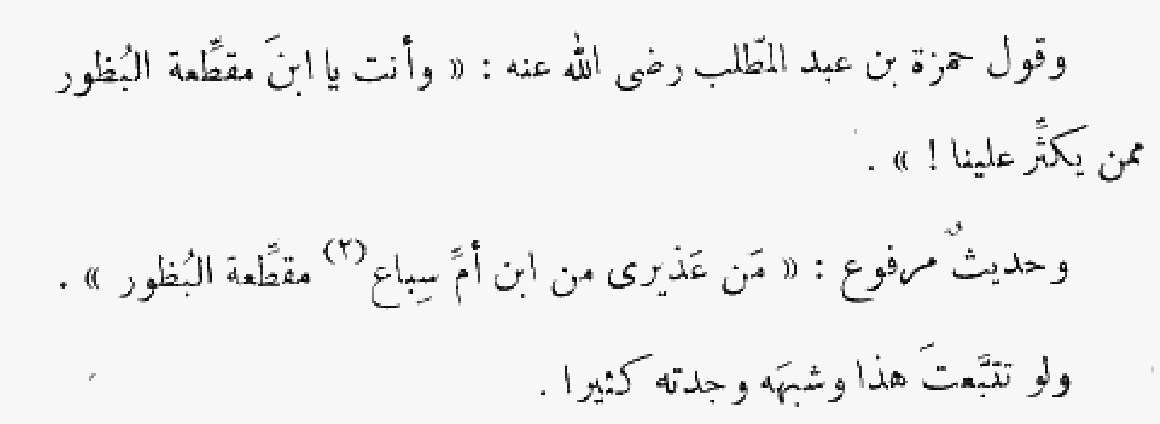 وقول حمزة بن عبد المطّلب رضى الله عنه : « وأنت يا ابنَ مقطِّعة البُظور
ممن يكثِّر علينا ! » .
وحديثٌ مرفوع : « مَن عَذيرى من ابن أمِّ سِباع (٢) مقطِّعة البُظور » .
ولو تتبَّعتَ هذا وشبهَه وجدته كثيرا .